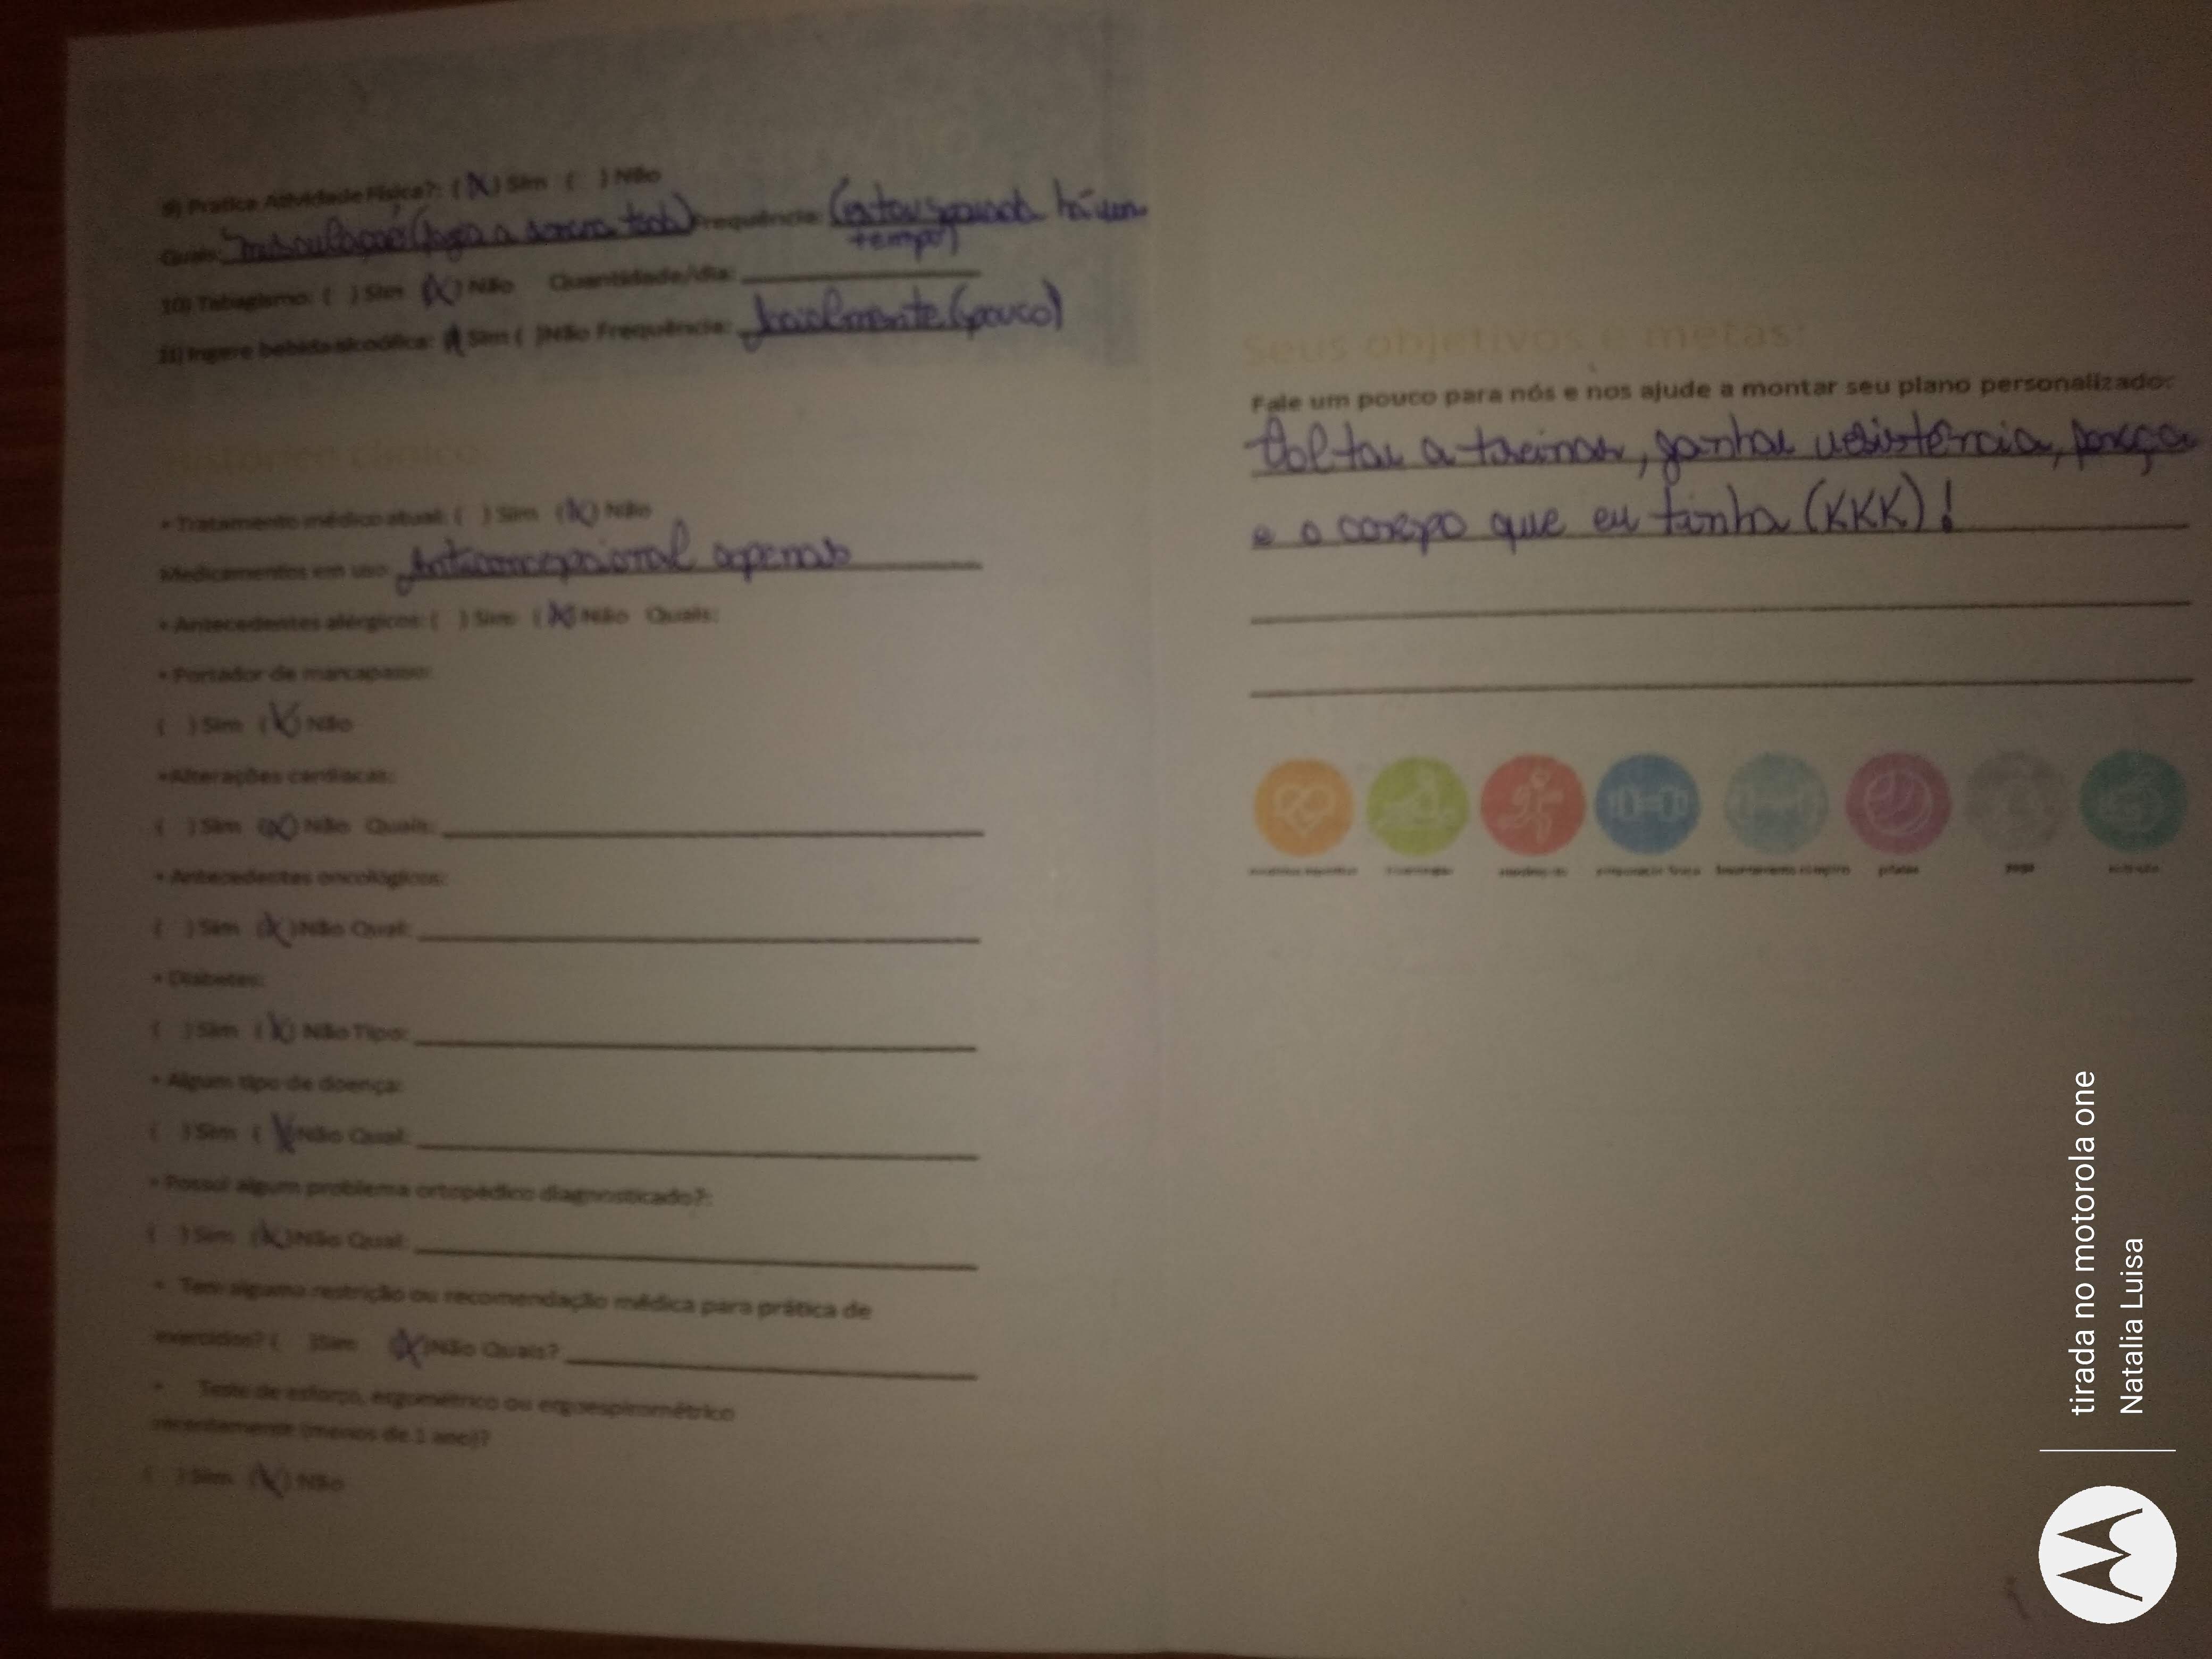 9) Pratica Atividade Física?: (X) Sim ( ) Não
Quais: Musculação (faço a soma toda) Frequência: (estou parada há um
tempo)
10) Tabagismo: ( ) Sim (X) Não Quantidade/dia:
11) Ingere bebida alcoólica: (X) Sim ( )Não Frequência: Socialmente (pouco)
• Tratamento médico atual: ( ) Sim (X) Não
Medicamentos em uso: Anticoncepcional apenas
• Antecedentes alérgicos: ( ) Sim (X) Não Quais:
• Portador de marcapasso:
( ) Sim (X) Não
•Alterações cardíacas:
( ) Sim (X) Não Quais:
•Antecedentes oncológicos:
( ) Sim (X) Não Qual:
• Diabetes:
( ) Sim (X) Não Tipo:
• Algum tipo de doença:
( ) Sim (X) Não Qual:
• Possui algum problema ortopédico diagnosticado?:
( ) Sim (X) Não Qual:
• Tem alguma restrição ou recomendação médica para prática de
exercício? ( )Sim (X) Não Quais?
• Teste de esforço, ergométrico ou ergoespirométrico
recentemente (menos de 1 ano)?
( ) Sim (X) Não
Seus objetivos e metas:
Fale um pouco para nós e nos ajude a montar seu plano personalizado:
Voltar a treinar, ganhar resistência, força
e o corpo que eu tinha (KKK)!
pilates
yoga
tirada no motorola one
Natalia Luisa